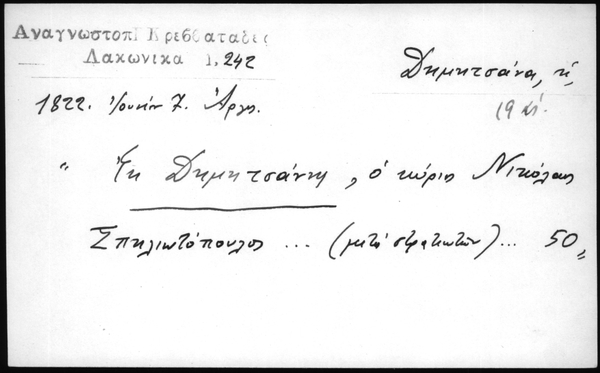 Αναγνωστοπ Κρεββαταδες
Λακωνικα 1, 242
Δημητσάνα, ἡ
19 αἰ.
1822. Ἰουνίου 7. Ἄργος.
" Ἐκ Δημητσάνης, ὁ κύριος Νικόλαος
Σπηλιωτόπουλος ... (μετὰ στρατιωτῶν) ... 50 "